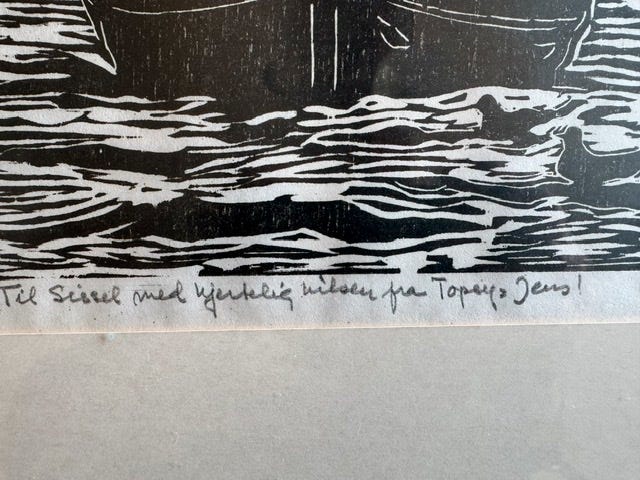 Til Sissel med hjertelig hilsen fra Topsy & Jens!